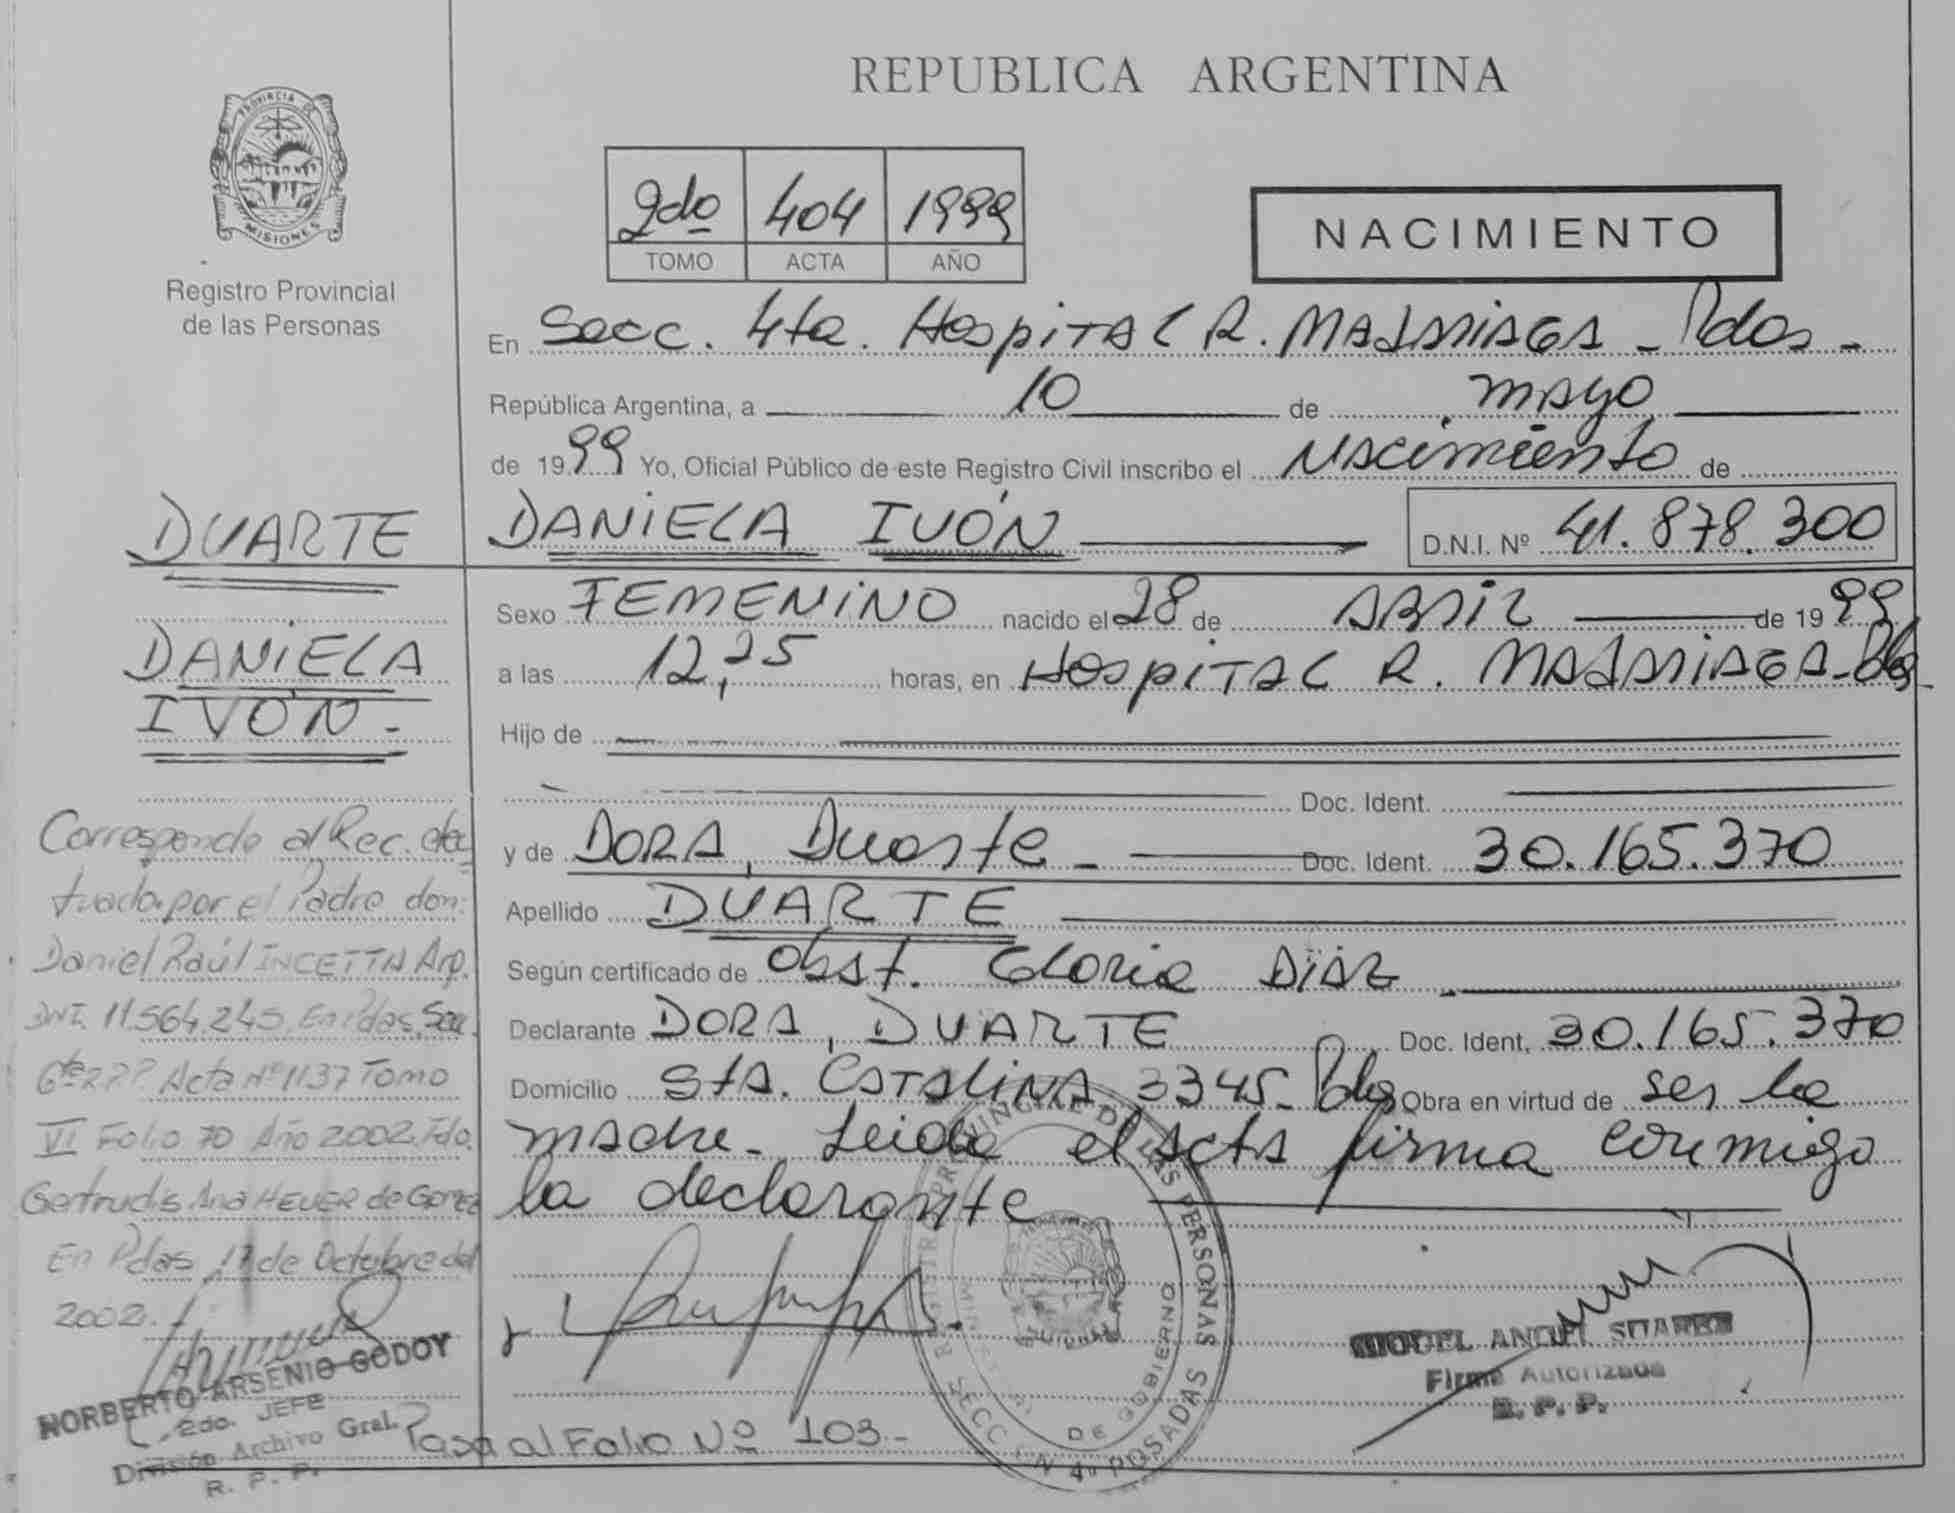 PROVINCIA DE
MISIONES
Registro Provincial
de las Personas
REPUBLICA ARGENTINA
2do 404 1999
TOMO ACTA AÑO
NACIMIENTO
En Secc. 4ta. Hospital R. Madariaga - Pdas -
República Argentina, a 10 de mayo
de 1999 Yo, Oficial Público de este Registro Civil inscribo el Nacimiento de
DANIELA IVÓN D.N.I. Nº 41.878.300
Sexo FEMENINO nacido el 28 de Abril de 1999
a las 12,25 horas, en Hospital R. Madariaga - Pdas
Hijo de
Doc. Ident.
y de DORA, Duarte - Doc. Ident. 30.165.370
Apellido DUARTE
Según certificado de Obst. Gloria Diaz
Declarante DORA, DUARTE Doc. Ident. 30.165.370
Domicilio Sta. Catalina 3345- Pdas Obra en virtud de ser la
madre- Leida el acta firma conmigo
la declarante
DUARTE
DANIELA
IVÓN -
Corresponde al Rec. efec
tuado por el Padre don:
Daniel Raúl INCETTA Arg.
DNI. 11.564.245. En Pdas, Secc.
6ta RPP Acta Nº 1137 Tomo
VI Folio 70 Año 2002. Fdo.
Gertrudis Ana HEUER de
En Pdas 17 de Octubre del
2002.
NORBERTO ARSENIO GODOY
2do. JEFE
División Archivo Gral.
R. P. P.
Pasa al Folio Nº 103-
REGISTRO PROVINCIAL DE LAS PERSONAS
DE GOBIERNO
MISIONES
SECCION 4º POSADAS
MIGUEL ANGEL SUAREZ
Firma Autorizada
R. P. P.